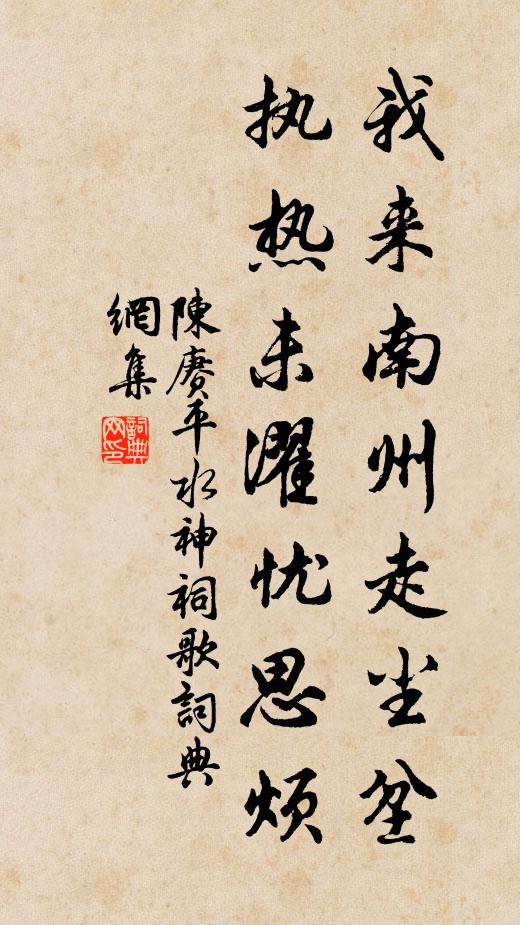 我来南州走尘坌
执热未濯忧思烦
陳賡平水神祠歌詞典
網集
詞典
网印